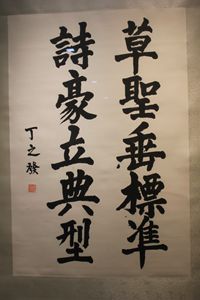 草聖垂標準
詩豪立典型
丁之發